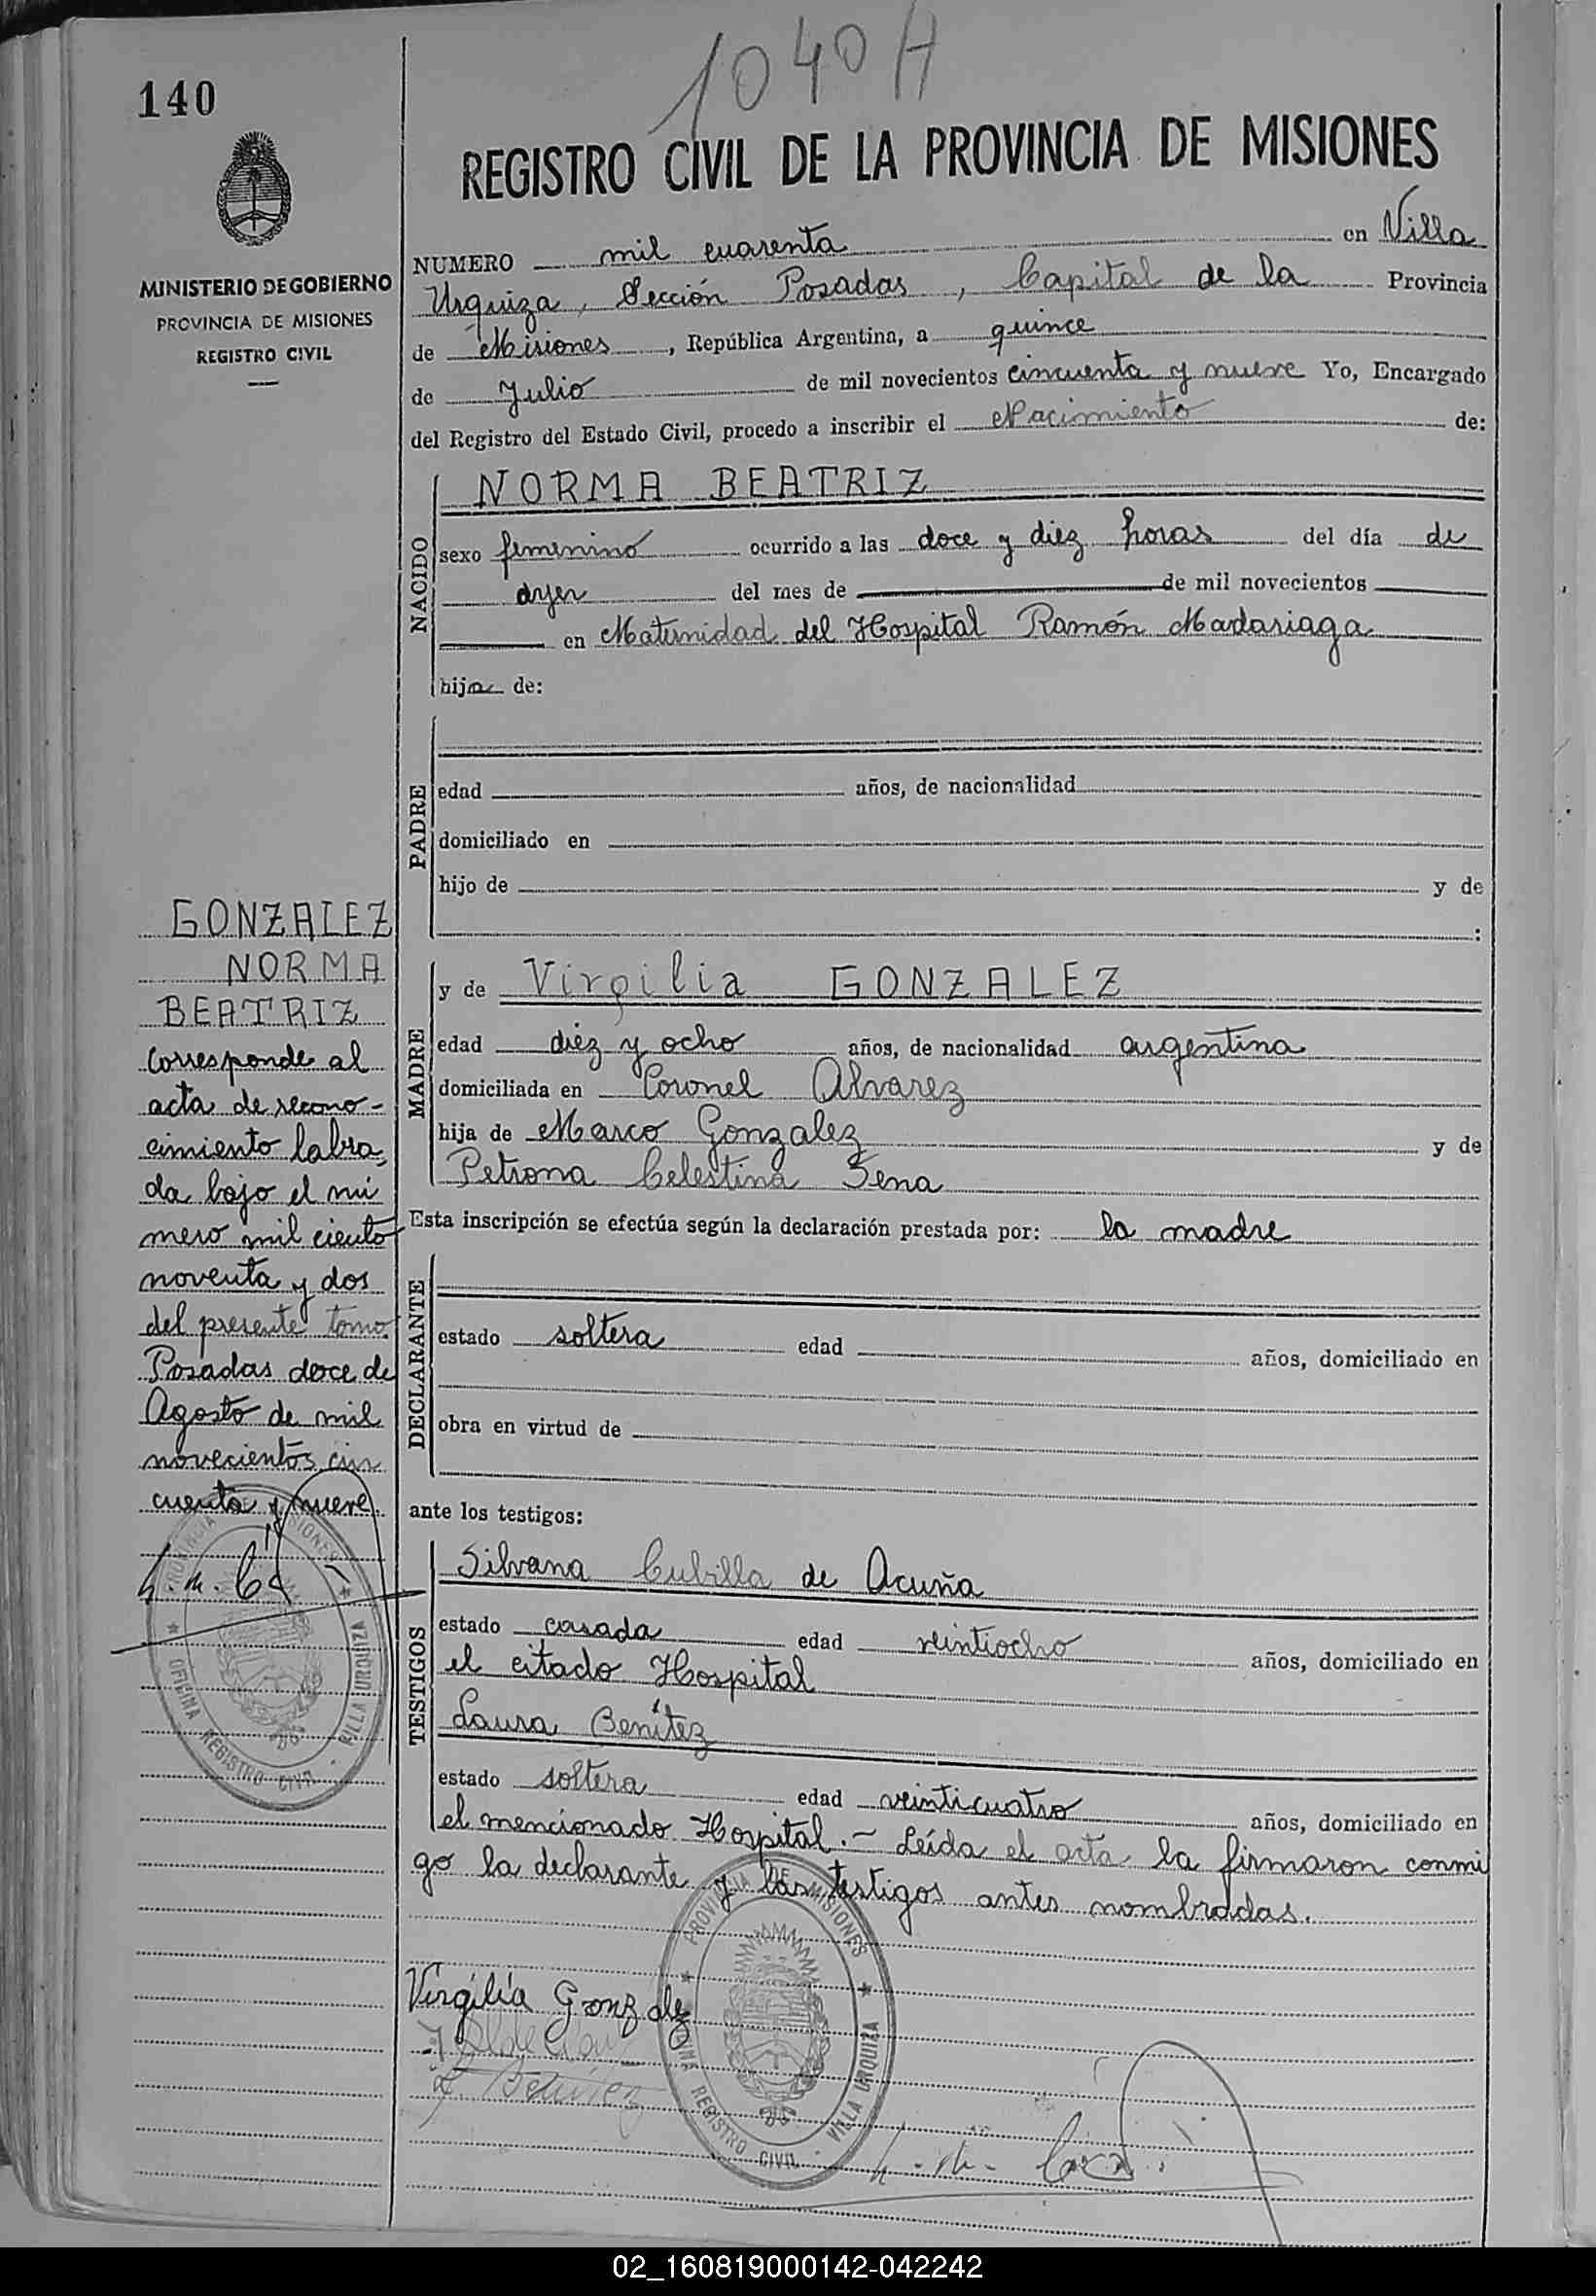 1040 A
140
REGISTRO CIVIL DE LA PROVINCIA DE MISIONES
MINISTERIO DE GOBIERNO
PROVINCIA DE MISIONES
REGISTRO CIVIL
NUMERO mil cuarenta en Villa
Urquiza, Sección Posadas, Capital de la Provincia
de Misiones, República Argentina, a quince
de Julio de mil novecientos cincuenta y nueve Yo, Encargado
del Registro del Estado Civil, procedo a inscribir el Nacimiento de:
NACIDO
NORMA BEATRIZ
sexo femenino ocurrido a las doce y diez horas del día de
ayer del mes de de mil novecientos
en Maternidad del Hospital Ramón Madariaga
hija de:
PADRE
edad años, de nacionalidad
domiciliado en
hijo de y de
:
MADRE
y de Virgilia GONZALEZ
edad diez y ocho años, de nacionalidad argentina
domiciliada en Coronel Alvarez
hija de Marco Gonzalez y de
Petrona Celestina Sena
Esta inscripción se efectúa según la declaración prestada por: la madre
DECLARANTE
estado soltera edad años, domiciliado en
obra en virtud de
ante los testigos:
TESTIGOS
Silvana Cubilla de Acuña
estado casada edad veintiocho años, domiciliado en
el citado Hospital
Laura Benítez
estado soltera edad veinticuatro años, domiciliado en
el mencionado Hospital.- Leída el acta la firmaron conmi
go la declarante y las testigos antes nombradas.
Virgilia Gonzalez
L Benitez
PROVINCIA DE MISIONES
OFICINA REGISTRO CIVIL - VILLA URQUIZA
GONZALEZ
NORMA
BEATRIZ
Corresponde al
acta de recono-
cimiento labra,
da bajo el nú
mero mil ciento
noventa y dos
del presente tomo.
Posadas doce de
Agosto de mil
novecientos cin
cuenta y nueve.
PROVINCIA DE MISIONES
OFICINA REGISTRO CIVIL - VILLA URQUIZA
02_160819000142-042242